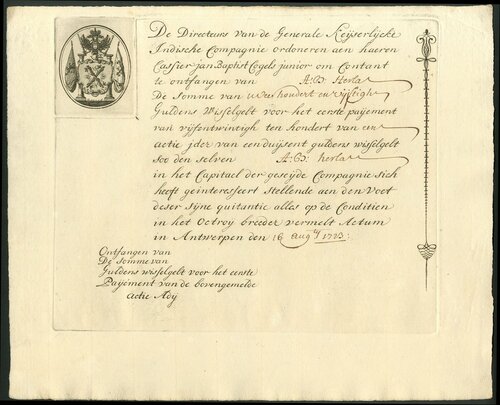 De Directeurs van de Generale Keijserlijcke
Indische Compagnie ordoneren aen haeren
Cassier jan Baptist Cogels junior om Contant
te ontfangen van A:B: Herla
De Somme van
Guldens Wisselgelt voor het eerste paijement
van vijfentwintigh ten hondert van een
actie jder van eenduijsent guldens wisselgelt
soo den selven A:B: herla
in het Capitael der geseijde Compagnie Sich
heeft geinteresseert Stellende aen den Voet
deser sijne quitantie alles op de Conditien
in het Octroy breeder vermelt Actum
in Antwerpen den 16 augti 1723:
Ontfangen van
De Somme van
Guldens wisselgelt voor het eerste
Payement van de bovengemelde
actie Adij